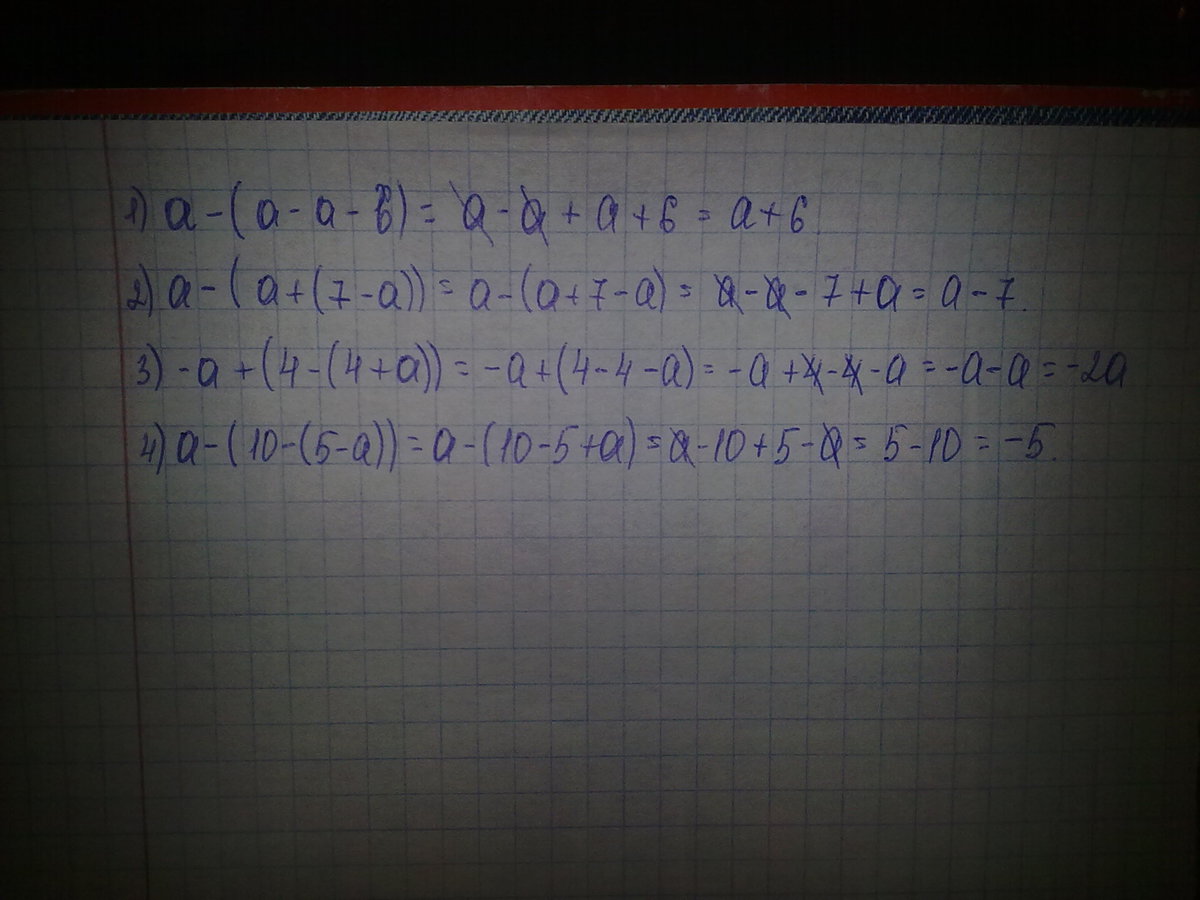 1) a-(a-a-6)=a-a+a+6=a+6
2) a-(a+(7-a))=a-(a+7-a)=a-a-7+a=a-7.
3) -a+(4-(4+a))=-a+(4-4-a)=-a+4-4-a=-a-a=-2a
4) a-(10-(5-a))=a-(10-5+a)=a-10+5-a=5-10=-5.